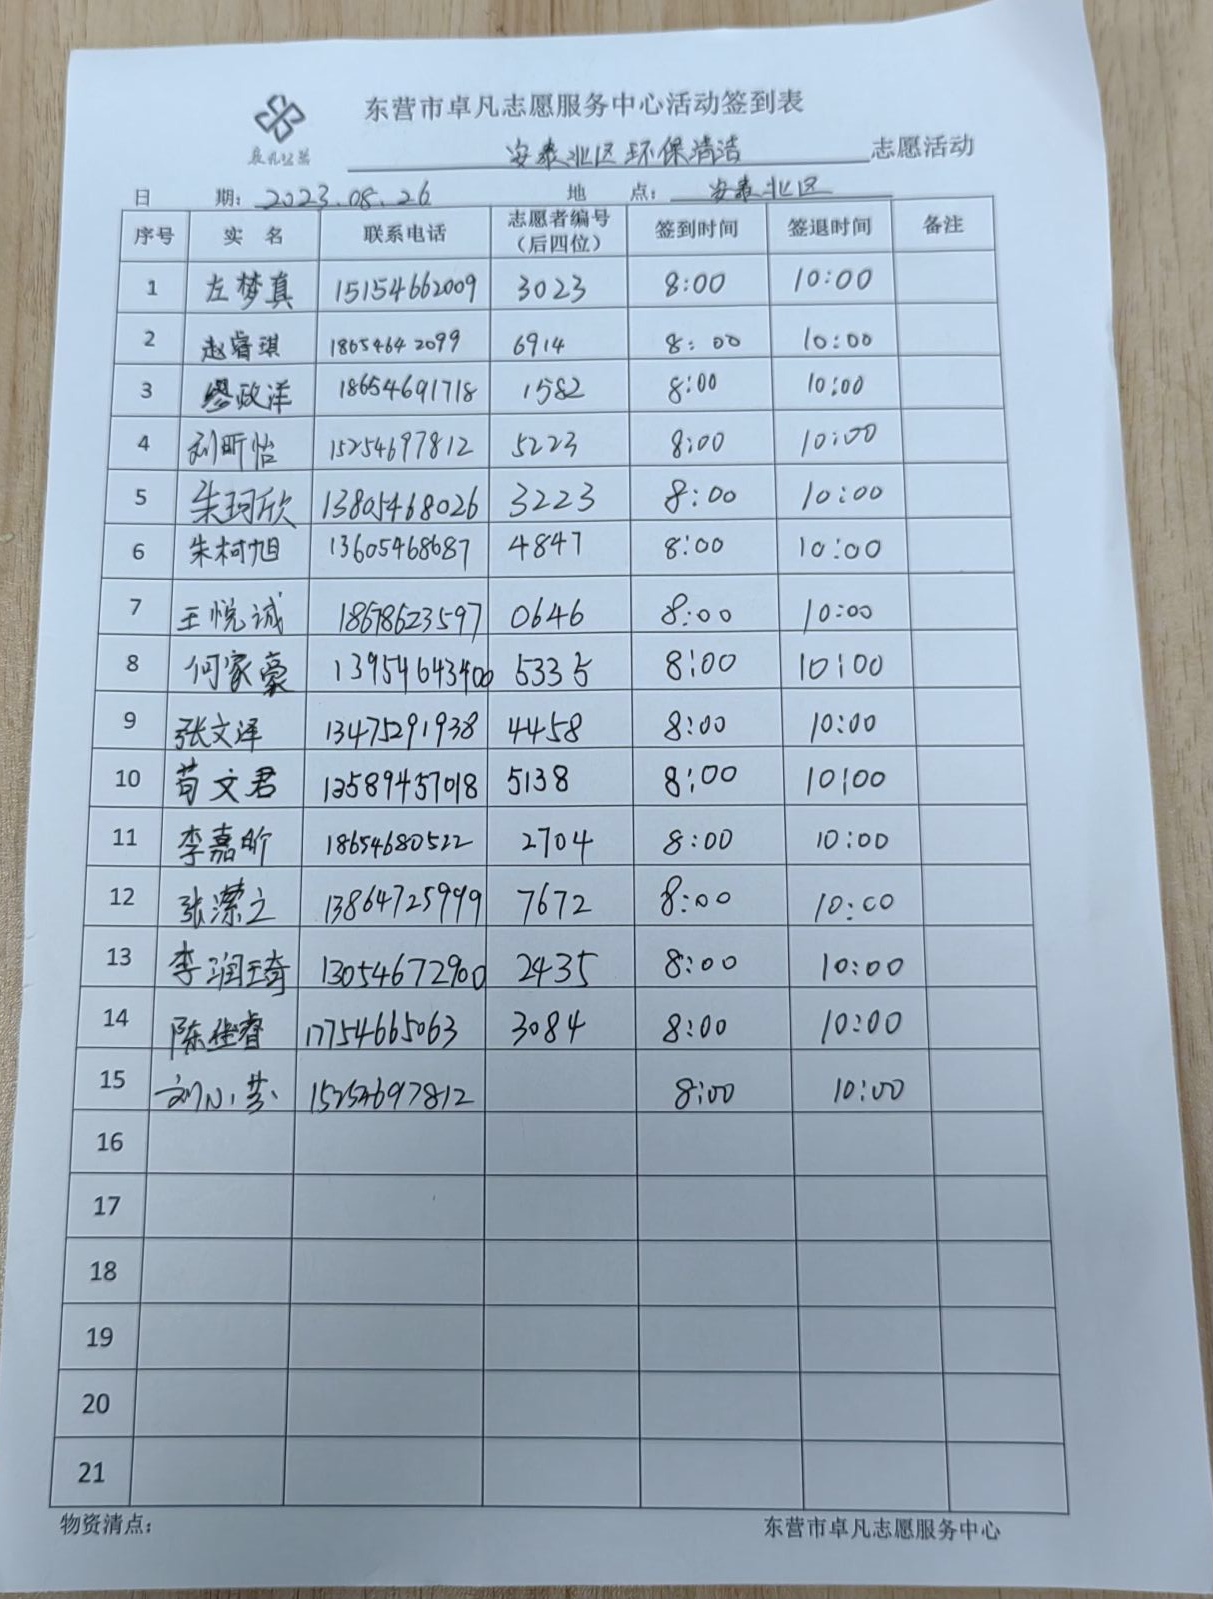 东营市卓凡志愿服务中心活动签到表
安泰北区环保清洁 志愿活动
卓凡公益
日 期: 2023.08.26 地 点: 安泰北区
序号 实 名 联系电话 志愿者编号（后四位） 签到时间 签退时间 备注
1 左梦真 15154662009 3023 8:00 10:00
2 赵睿琪 18654642099 6914 8:00 10:00
3 缪政洋 18654691718 1582 8:00 10:00
4 刘昕怡 15254697812 5223 8:00 10:00
5 朱珂欣 13805468026 3223 8:00 10:00
6 朱柯旭 13605468687 4847 8:00 10:00
7 王悦诚 18678623597 0646 8:00 10:00
8 何家豪 13954643400 5335 8:00 10:00
9 张文泽 13475291938 4458 8:00 10:00
10 苟文君 13589457018 5138 8:00 10:00
11 李嘉昕 18654680522 2704 8:00 10:00
12 张潆之 13864725999 7672 8:00 10:00
13 李润琦 13054672900 2435 8:00 10:00
14 陈佳睿 17754665063 3084 8:00 10:00
15 刘小芬 15254697812 8:00 10:00
16
17
18
19
20
21
物资清点: 东营市卓凡志愿服务中心